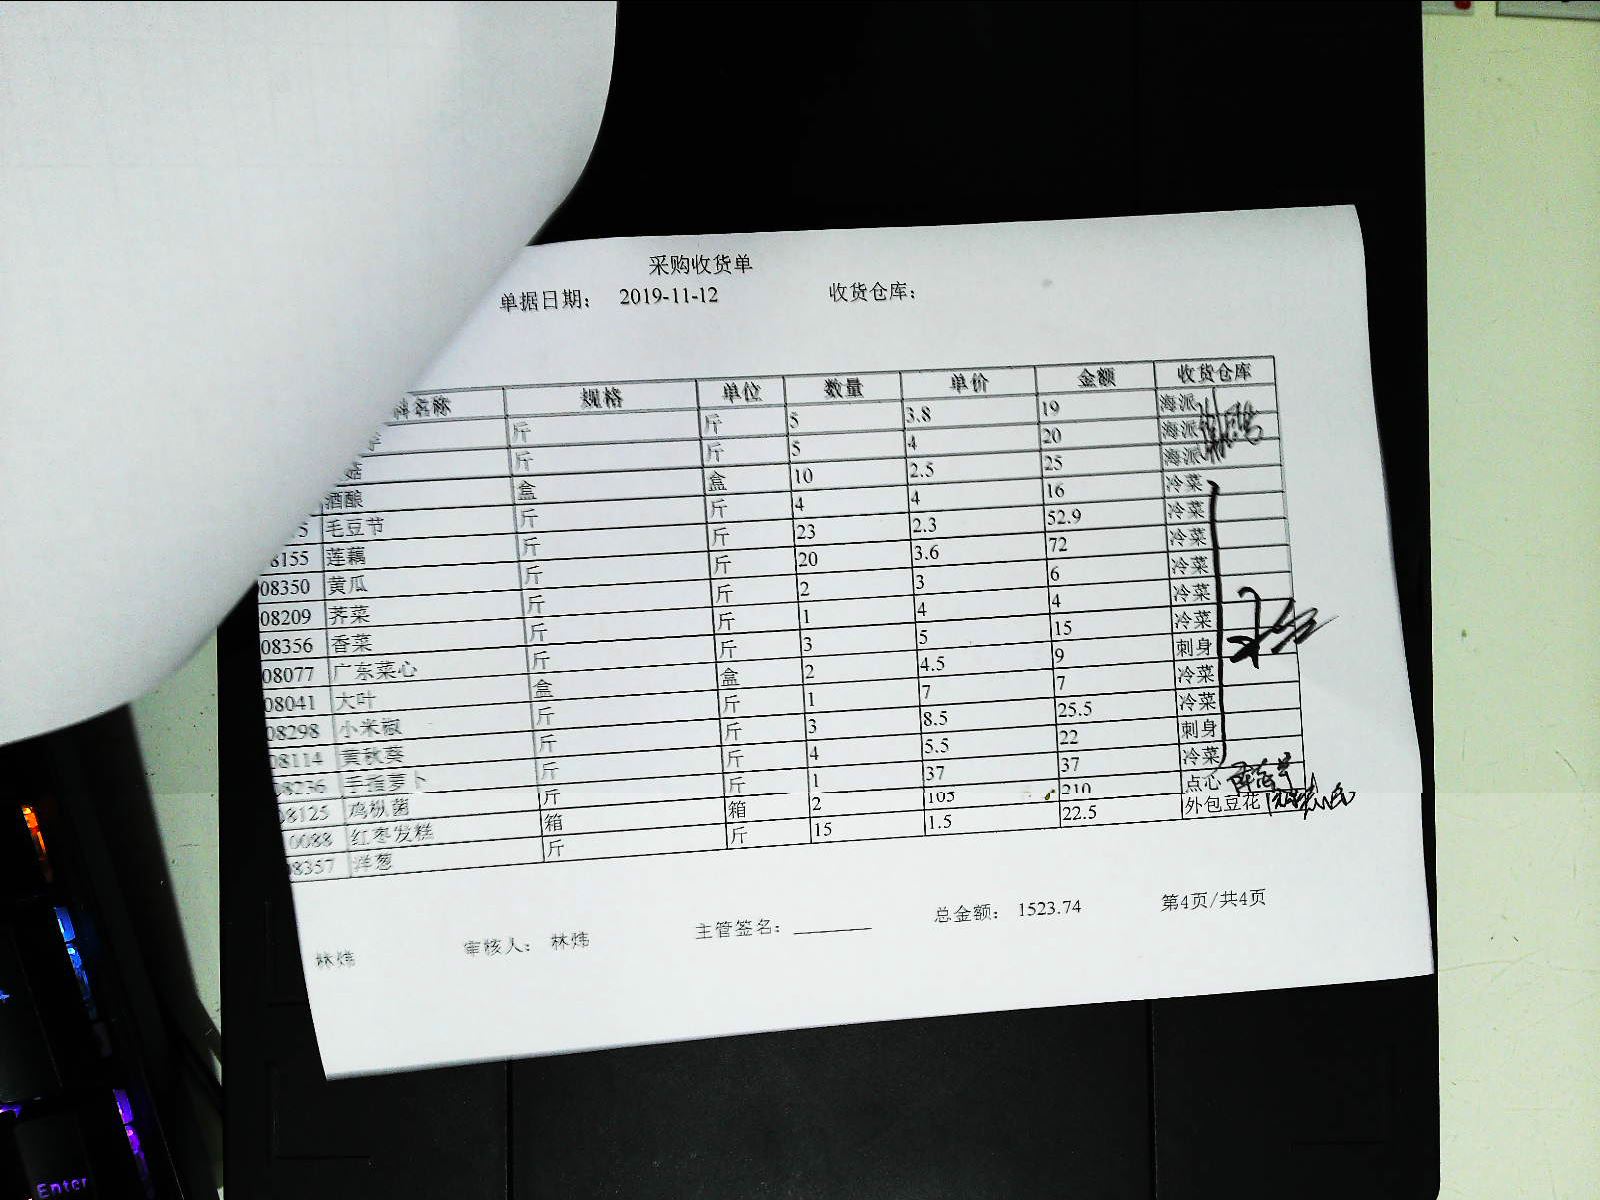 采购收货单
单据日期： 2019-11-12 收货仓库：
名称 规格 单位 数量 单价 金额 收货仓库
斤 斤 5 3.8 19 海派
菇 斤 斤 5 4 20 海派
酒酿 盒 盒 10 2.5 25 海派
5 毛豆节 斤 斤 4 4 16 冷菜
8155 莲藕 斤 斤 23 2.3 52.9 冷菜
08350 黄瓜 斤 斤 20 3.6 72 冷菜
08209 荠菜 斤 斤 2 3 6 冷菜
08356 香菜 斤 斤 1 4 4 冷菜
08077 广东菜心 斤 斤 3 5 15 冷菜
08041 大叶 盒 盒 2 4.5 9 刺身
08298 小米椒 斤 斤 1 7 7 冷菜
08114 黄秋葵 斤 斤 3 8.5 25.5 冷菜
08236 手指萝卜 斤 斤 4 5.5 22 刺身
08125 鸡枞菌 斤 斤 1 37 37 冷菜
0088 红枣发糕 箱 箱 2 105 210 点心
08357 洋葱 斤 斤 15 1.5 22.5 外包豆花
林炜 审核人： 林炜 主管签名： 总金额： 1523.74 第4页/共4页